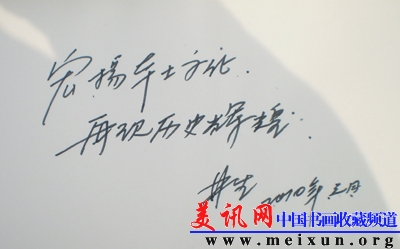 宏扬本土文化.
再现历史辉煌.
2010年五月
美讯网 中国书画收藏频道
www.meixun.org